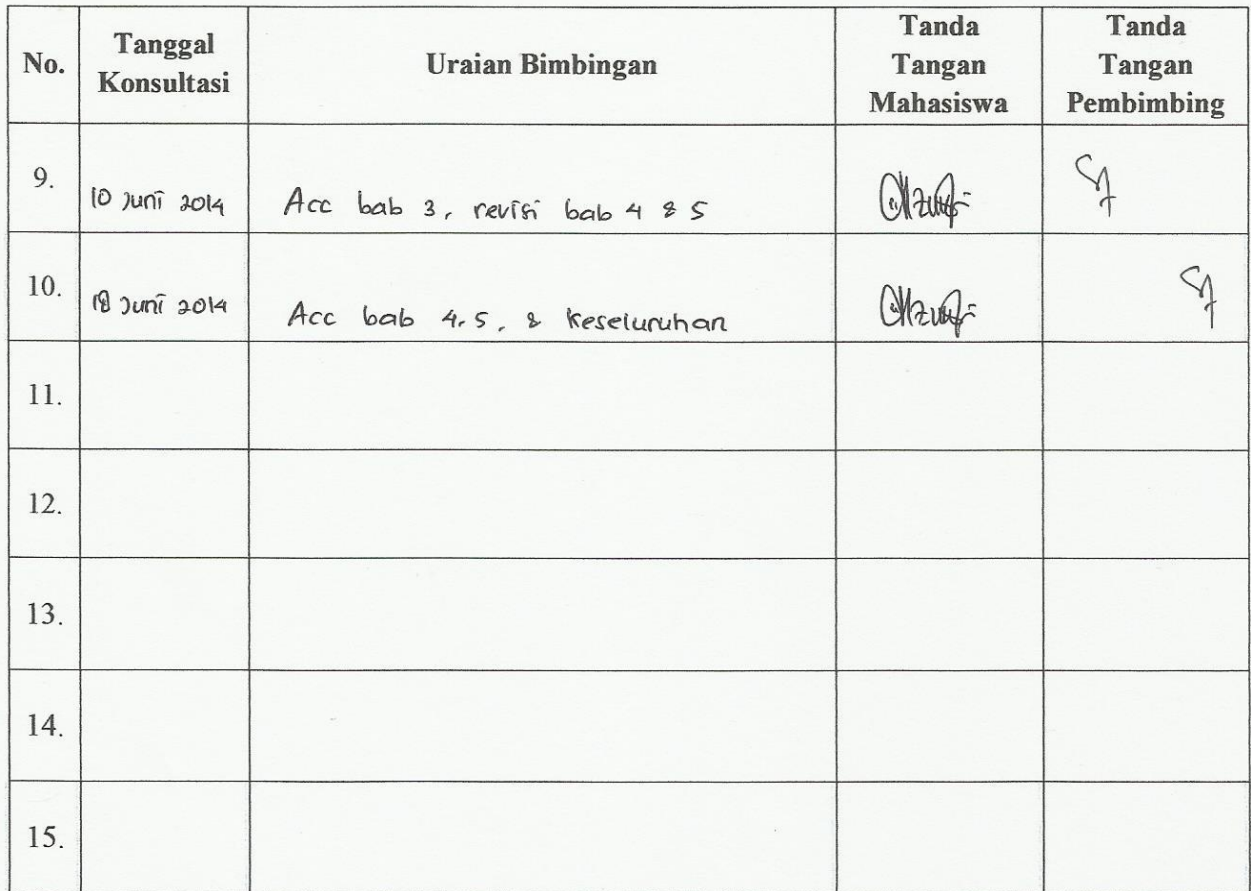 No. Tanggal Konsultasi Uraian Bimbingan Tanda Tangan Mahasiswa Tanda Tangan Pembimbing
9. 10 Juni 2014 Acc bab 3, revisi bab 4 & 5
10. 18 Juni 2014 Acc bab 4, 5, & keseluruhan
11.
12.
13.
14.
15.